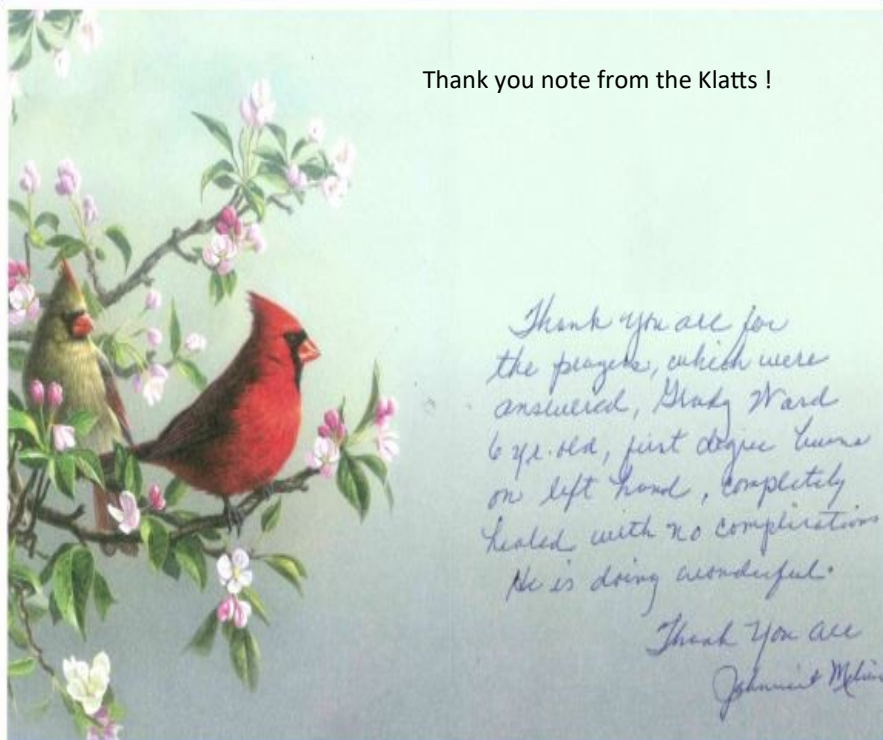 Thank you note from the Klatts !
Thank you all for
the prayers, which were
answered, Grady Ward
6 yr. old, first degree burns
on left hand, completely
healed with no complications
He is doing wonderful.
Thank You all